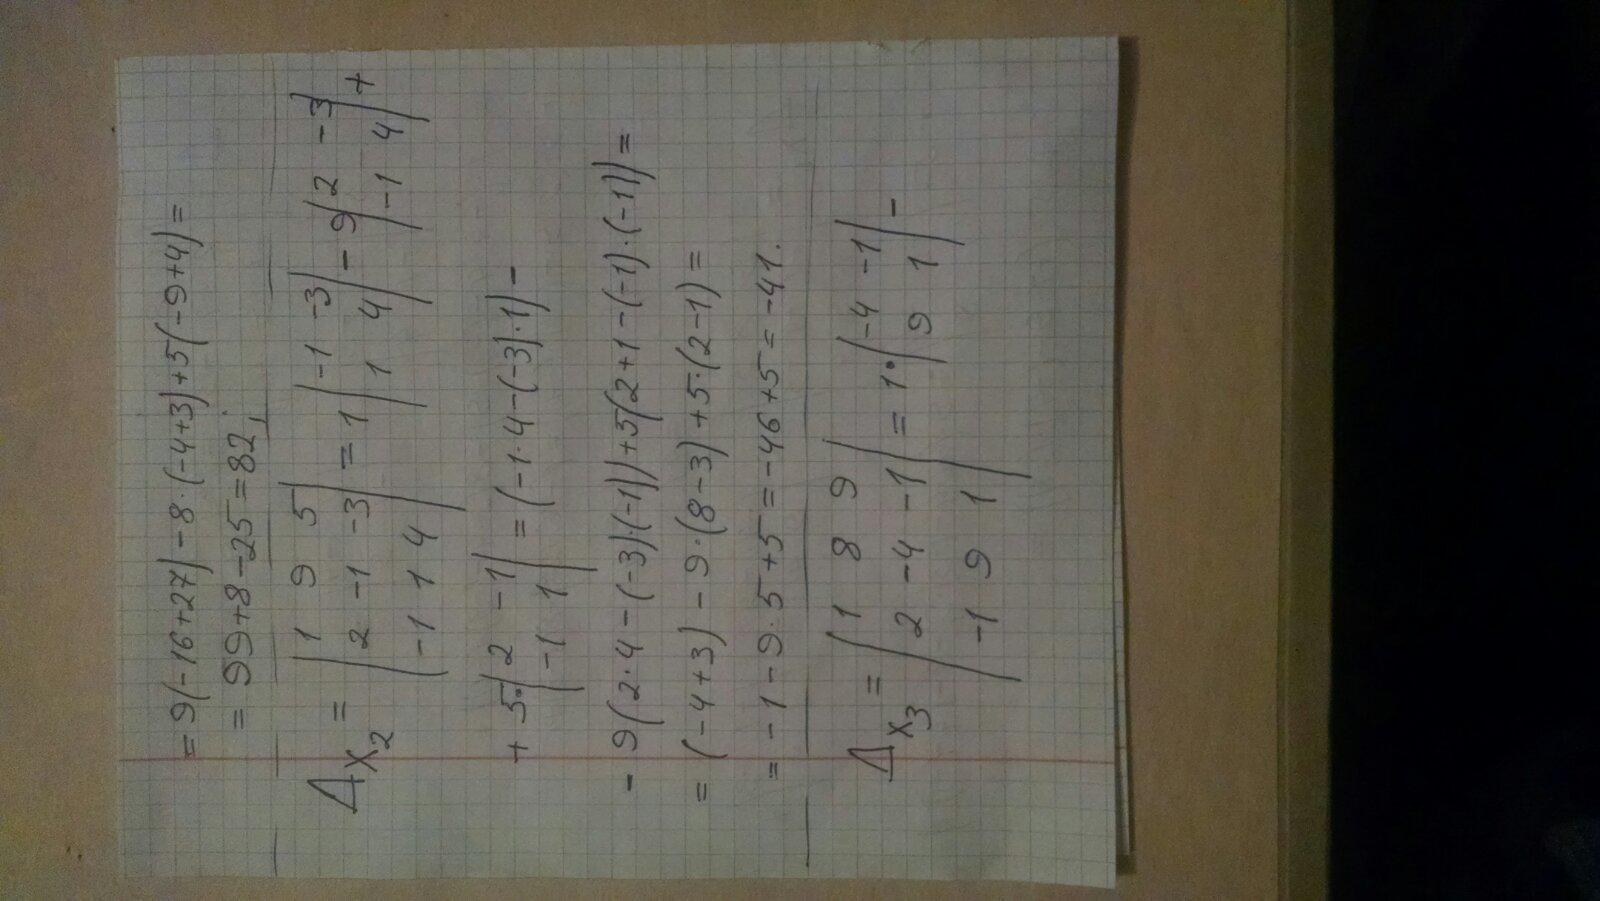 = 9(-16+27) - 8·(-4+3)+5(-9+4) =
= 99+8-25=82;
Δx₂ = | 1 9 5 | = 1 | -1 -3 | - 9 | 2 -3 | +
| 2 -1 -3 | | 1 4 | | -1 4 |
| -1 1 4 |
+ 5·| 2 -1 | = (-1·4-(-3)·1) -
| -1 1 |
- 9(2·4-(-3)·(-1))+5(2+1-(-1)·(-1)) =
= (-4+3) - 9·(8-3)+5·(2-1) =
= -1-9·5+5=-46+5=-41.
Δx₃ = | 1 8 9 | = 1·| -4 -1 | -
| 2 -4 -1 | | 9 1 |
| -1 9 1 |